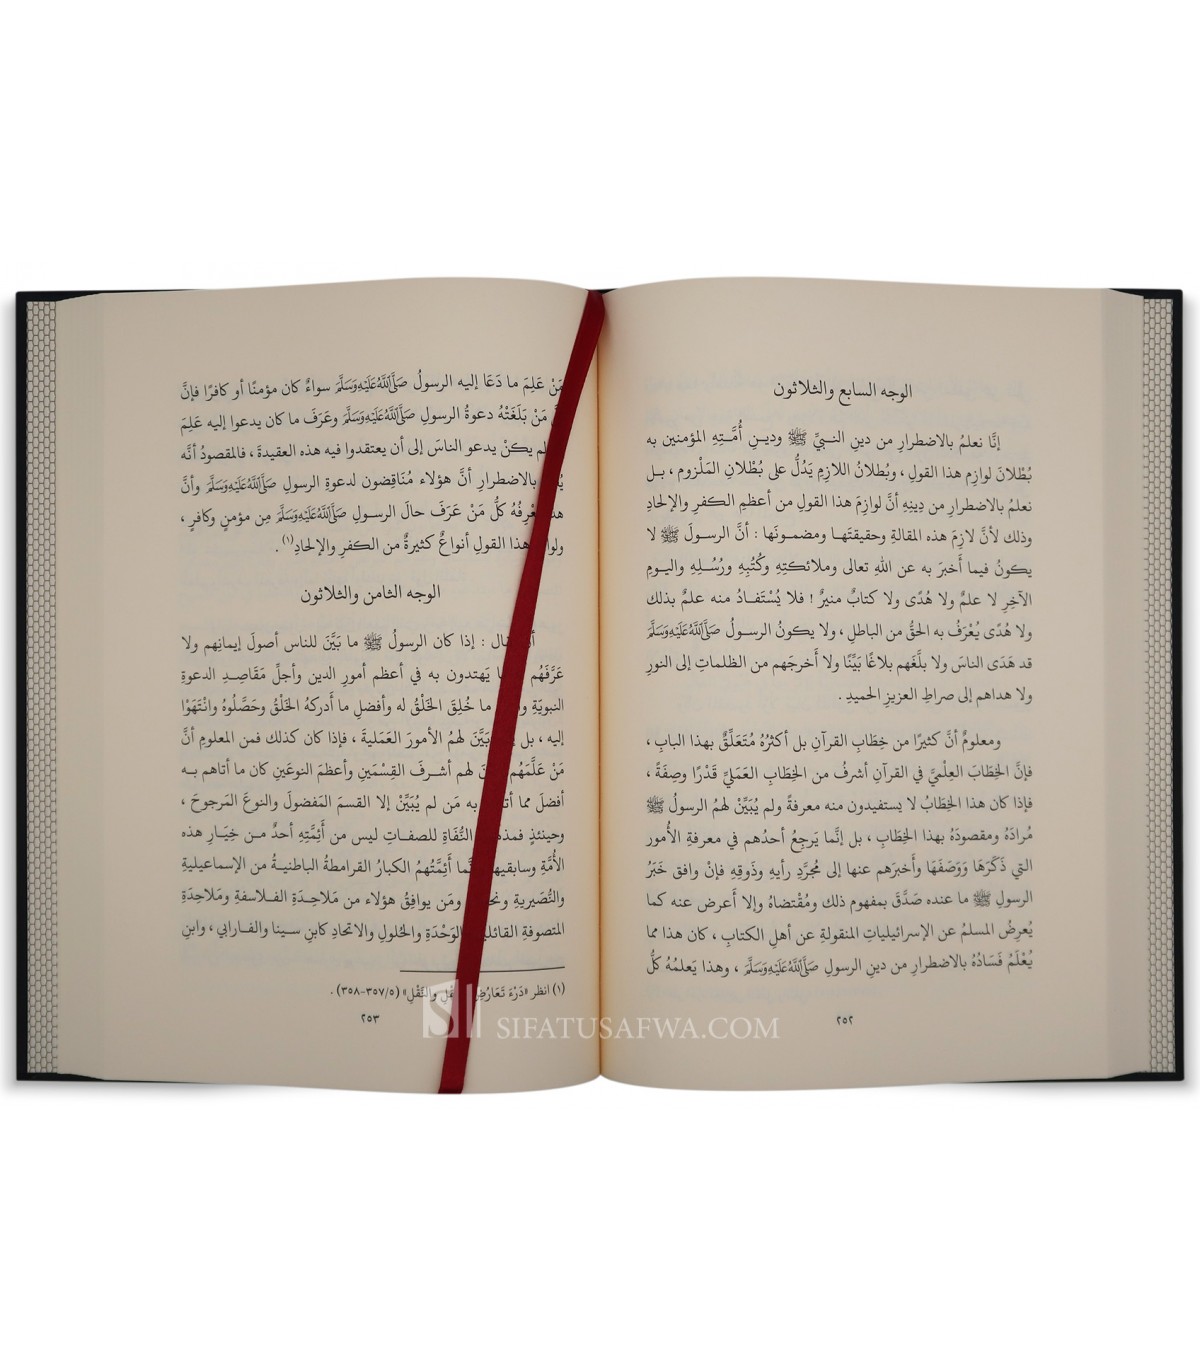 الوجه السابع والثلاثون
إنَّا نعلمُ بالاضطرارِ من دينِ النبيِّ ﷺ ودينِ أُمَّتِهِ المؤمنين به
بُطْلانَ لوازِمِ هذا القولِ ، وبُطلانُ اللازِمِ يَدُلُّ على بُطْلانِ المَلْزومِ ، بل
نعلمُ بالاضطرارِ من دِينِهِ أنَّ لوازِمَ هذا القولِ من أعظمِ الكفرِ والإلحادِ
وذلك لأنَّ لازِمَ هذه المقالةِ وحقيقتَها ومضمونَها : أنَّ الرسولَ ﷺ لا
يكونُ فيما أخبرَ به عن اللهِ تعالى وملائكتِهِ وكُتُبِهِ ورُسُلِهِ واليومِ
الآخِرِ لا علمٌ ولا هُدًى ولا كتابٌ منيرٌ ! فلا يُسْتَفادُ منه علمٌ بذلك
ولا هُدًى يُعْرَفُ به الحقُّ من الباطلِ ، ولا يكونُ الرسولُ صَلَّىٱللَّهُعَلَيْهِوَسَلَّمَ
قد هَدَى الناسَ ولا بلَّغَهم بلاغًا بَيِّنًا ولا أَخرجَهم من الظلماتِ إلى النورِ
ولا هداهم إلى صراطِ العزيزِ الحميدِ .
ومعلومٌ أنَّ كثيرًا من خِطَابِ القرآنِ بل أكثرُهُ مُتَعَلِّقٌ بهذا البابِ ،
فإنَّ الخِطَابَ العِلْميَّ في القرآنِ أشرفُ من الخِطَابِ العَمَليِّ قَدْرًا وصِفَةً ،
فإذا كان هذا الخِطَابُ لا يستفيدون منه معرفةً ولم يُبَيِّنْ لهمُ الرسولُ ﷺ
مُرادَهُ ومقصودَهُ بهذا الخِطَابِ ، بل إنَّما يَرجِعُ أحدُهم في معرفةِ الأُمورِ
التي ذَكَرَهَا وَوَصَفَهَا وأَخبرَهم عنها إلى مُجرَّدِ رأيِهِ وذَوقِهِ فإنْ وافق خَبَرُ
الرسولِ ﷺ ما عنده صَدَّقَ بمفهومِ ذلك ومُقْتضاهُ وإلا أَعرض عنه كما
يُعرِضُ المسلمُ عن الإسرائيلياتِ المنقولةِ عن أهلِ الكتابِ ، كان هذا مما
يُعْلَمُ فَسَادُهُ بالاضطرارِ من دينِ الرسولِ صَلَّىٱللَّهُعَلَيْهِوَسَلَّمَ ، وهذا يَعلمُهُ كلُّ
٢٥٢
مَنْ عَلِمَ ما دَعَا إليه الرسولُ صَلَّىٱللَّهُعَلَيْهِوَسَلَّمَ سواءٌ كان مؤمنًا أو كافرًا فإنَّ
مَنْ بَلَغَتْهُ دعوةُ الرسولِ صَلَّىٱللَّهُعَلَيْهِوَسَلَّمَ وعَرَفَ ما كان يدعوا إليه عَلِمَ
لم يكنْ يدعو الناسَ إلى أن يعتقدوا فيه هذه العقيدةَ ، فالمقصودُ أنَّه
بالاضطرارِ أنَّ هؤلاء مُنَاقِضون لدعوةِ الرسولِ صَلَّىٱللَّهُعَلَيْهِوَسَلَّمَ وأنَّ
كلُّ مَنْ عَرَفَ حالَ الرسولِ صَلَّىٱللَّهُعَلَيْهِوَسَلَّمَ مِن مؤمنٍ وكافرٍ ،
هذا القولِ أنواعٌ كثيرةٌ من الكفرِ والإلحادِ(١) .
الوجه الثامن والثلاثون
: إذا كان الرسولُ ﷺ ما بَيَّنَ للناس أصولَ إيمانِهم ولا
عَرَّفَهُم يَهتدون به في أعظم أمورِ الدين وأجلِّ مَقَاصِدِ الدعوةِ
النبويّةِ ما خُلِقَ الخَلْقُ له وأفضلِ ما أَدركهُ الخَلْقُ وحَصَّلُوهُ وانْتَهَوْا
إليه ، بل بَيَّنَ لهمُ الأمورَ العَمَليةَ ، فإذا كان كذلك فمن المعلومِ أنَّ
مَنْ عَلَّمَهُم لهم أشرفَ القِسْمَينِ وأعظمَ النوعَينِ كان ما أتاهم به
أفضلَ مما به مَن لم يُبَيِّنْ إلا القسمَ المَفضولَ والنوعَ المَرجوحَ ،
وحينئذٍ النُّفَاةِ للصفاتِ ليس من أئِمَّتِهِ أحدٌ من خِيَارِ هذه
الأُمَّةِ وسابقيها أَئِمَّتُهُمُ الكبارُ القرامطةُ الباطنيةُ من الإسماعيليةِ
والنُّصَيريةِ ومَن يوافِقُ هؤلاء من مَلاحِدَةِ الفلاسفةِ ومَلاحِدَةِ
المتصوفةِ القائلين الوَحْدَةِ والحُلولِ والاتحادِ كابنِ سينا والفارابي ، وابنِ
(١) انظر «دَرْءَ تَعَارُضِ والنَّقْلِ» (٣٥٧/٥-٣٥٨) .
٢٥٣
SIFATUSAFWA.COM